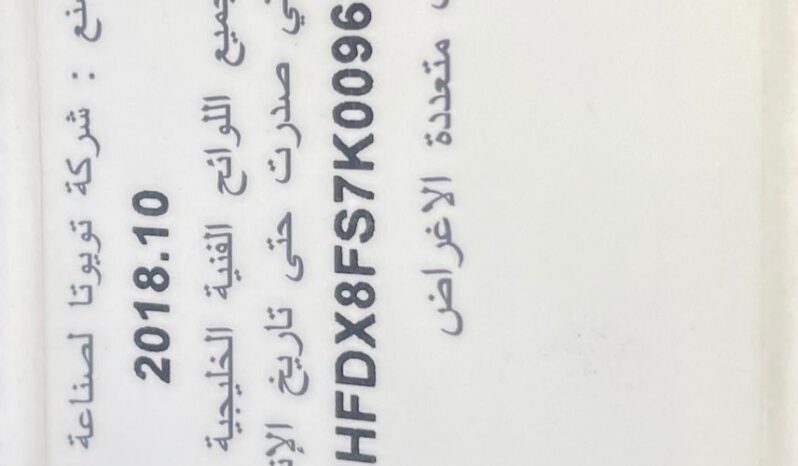 صنع : شركة تويوتا لصناعة
2018.10
جميع اللوائح الفنية الخليجية
صدرت حتى تاريخ
HFDX8FS7K0096
متعددة الاغراض